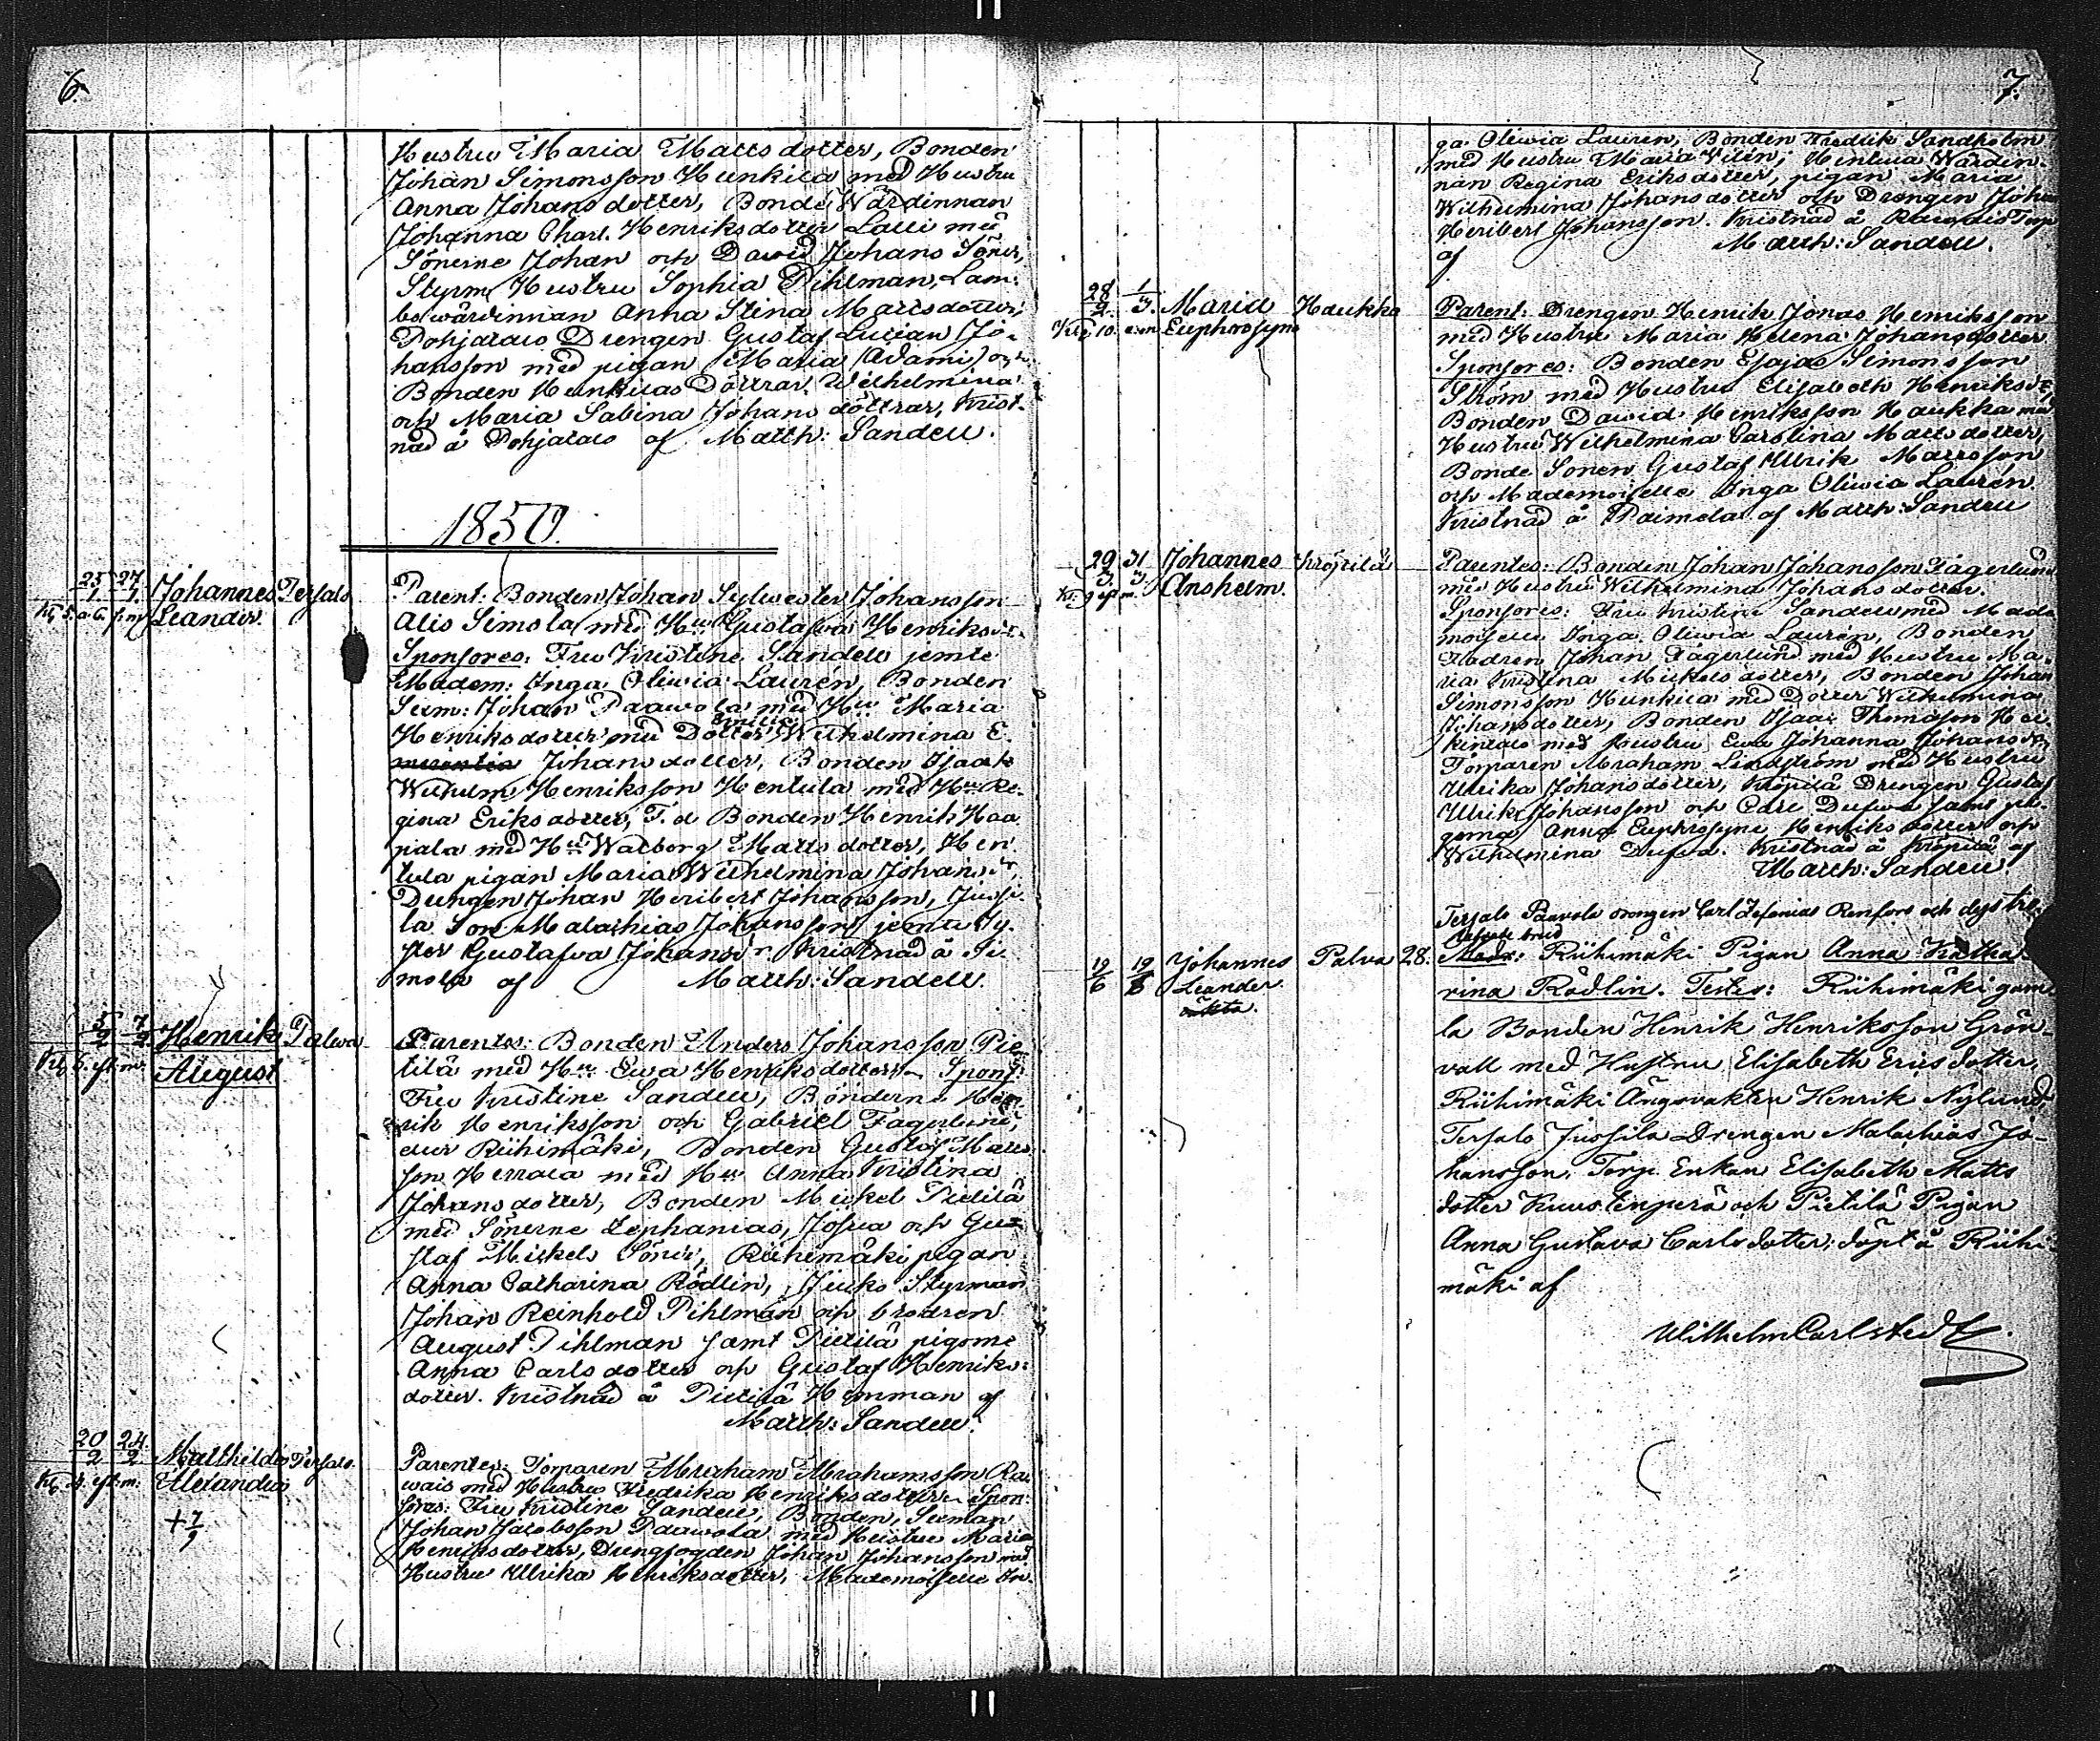 6.
Hustru Maria Matts dotter, Bonden
Johan Simonsson Hunkila med Hustru
Anna Johans dotter, Bonde Wärdinnan
Johanna Charl. Henriks dotter Lalli med
Sönerne Johan och David Johans Söner,
Styrm. Hustru Sophia Pihlman, Lam-
bo wärdinnan Anna Stina Mattsdotter,
Pohjatalo Drengen Gustaf Lucian Jo-
hansson med pigan Maria (Adami) och
Bonden Hunkilas Döttrar Wilhelmina
och Maria Sabina Johans döttrar, Krist-
nad å Pohjatalo af Matth: Sandell.
1850.
25/1 27/1 Johannes Tersalo
Kl. 5 a 6. f.m. Leander.
Parent: Bonden Johan Sylvester Johansson
Alis Simola med Hu Gustafva Henriksdr.
Sponsores: Fru Kristine Sandell jemte
Madem: Inga Oliwia Laurén, Bonden
Johan Paavola med Hu Maria
Henriks dotter med Dotter Emilia Wilhelmina E.
Johans dotter, Bonden Isaak
Wilhelm Henriksson Hentula med Hu Re-
gina Eriks dotter, F. d Bonden Henrik Haa
pala med Hu Walborg Matts dotter, Hen
tula pigan Maria Wilhelmina Johans dr,
Drengen Johan Heribert Johansson, Jussi-
la Son Malachias Johansson jemte Sy-
ster Gustafva Johansdr Kristnad å Si
mola af Matth: Sandell.
5/2 7/2 Henrik Palva
Kl. 5. eft. m. August
Parentes: Bonden Anders Johansson Pie
tilä med Hu Ewa Henriksdotter Spons:
Fru Kristine Sandell, Bönderne Hen
rik Henriksson och Gabriel Fagerlund,
eller Riihimäki, Bonden Gustaf Matts
son Herrala med Hu Anna Kristina
Johans dotter, Bonden Mickel Pietilä
med Sönerne Zephanias, Josua och Gu
staf Mickels Söner, Riihimäki pigan
Anna Catharina Rödlin, Juko Styrman
Johan Reinhold Pihlman och brodren
August Pihlman samt Pietilä pigorne
Anna Carls dotter och Gustaf Henriks-
dotter. Kristnad å Pietilä Hemman af
Matth: Sandell.
20/2 24/2 Mathilda Tersalo.
eft. m: Alexandra
+ 7/9
Parentes: Torparen Abraham Abrahamsson Ra
wais med Hustru Fredrika Henriksdotter Spon-
sores: Fru Kristine Sandell, Bonden, Seeman
Johan Jacobsson Paawola med Hustru Maria
Henriksdotter, Drengfogden Johan Johansson med
Hustru Ulrika Henriksdotter, Mademoiselle In-
7.
ga Oliwia Lauren, Bonden Fredrik Sandholm
med Hustru Maria Vilén, Hentula Wärdin-
nan Regina Eriksdotter, pigan Maria
Wilhelmina Johans dotter och Drengen Johan
Heribert Johansson. Kristnad å Rawais Torp
af Matth: Sandell.
28/2 1/3. Maria Haukka
Kl. 10. Euphrosyne
Parent: Drengen Henrik Jonas Henriksson
med Hustru Maria Helena Johansdotter
Sponsores: Bonden Esajas Simonsson
Ström med Hustru Elisabeth Henriksdr,
Bonden David Henriksson Haukka med
Hustru Wilhelmina Carolina Matts dotter,
Bonde Sonen Gustaf Ulrik Mattsson
och Mademoiselle Inga Oliwia Laurén.
Kristnad å Paimela af Matth: Sandell
29/3. 31/3. Johannes Kröpilä
Kl. 9 eft m. Anshelm.
Parentes: Bonden Johan Johansson Fagerlund
med Hustru Wilhelmina Johans dotter.
Sponsores: Fru Kristine Sandell med Made
moiselle Inga Oliwia Laurén, Bonden
Fadren Johan Fagerlund med Hustru Ma-
ria Kristina Mickels dotter, Bonden Johan
Simonsson Hunkila med Dotter Wilhelmina
Johansdotter, Bonden Isaac Thomasson Hei
kintalo med Hustru Ewa Johanna Johansdr,
Torparen Abraham Lindström med Hustru
Ulrika Johansdotter, Kröpilä Drengen Gustaf
Ulrik Johansson och Carl Dufva samt pi-
gorna Anna Euphrosyne Henriks dotter och
Wilhelmina Dufva. Kristnad å Kröpilä af
Matth: Sandell.
19/6 19/6 Johannes Palva 28.
Leander
oäkta.
Tersalo Paavola drengen Carl Zefanias Renfors och dess
brud
Modr: Riihimäki Pigan Anna Katha-
rina Rödlin. Testes: Riihimäki gam-
la Bonden Henrik Henriksson Grön-
vall med Hustru Elisabeth Ericsdotter,
Riihimäki Ängsvakten Henrik Nylund,
Tersalo Jussila Drengen Malachias Jo-
hansson, Torp. Enkan Elisabeth Matts
dotter Kuustenperä och Pietilä Pigan
Anna Gustava Carlsdotter; döpt å Riihi-
mäki af
Wilhelm Carlstedt.